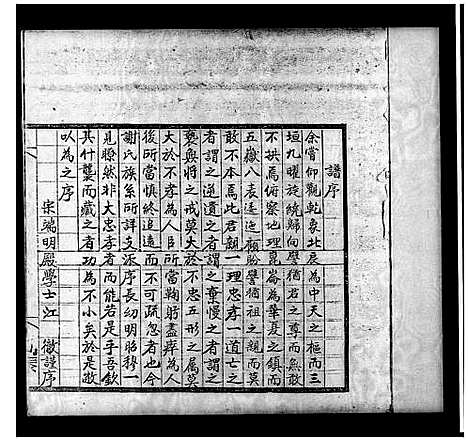 譜序
余嘗仰觀乾象北辰為中天之樞而三
垣九曜旋繞歸向譬猶君之尊而無敢
不拱焉俯察地理崑崙為華夏之鎮而
五嶽八表逶迤顧盼譬猶祖之親而莫
敢不本焉此君親一理忠孝一道亡之
者謂之逆遺之者謂之棄慢之者謂之
褻與將之戒莫大於不忠五形之屬莫
大於不孝為人臣所當鞠躬盡瘁為人
後所當慎終追遠而不可疏忽者也今
謝氏族系所詳支派序長幼明昭穆一
見瞭然非大忠孝者而能若是乎吾欽
其什襲而藏之者功為不小矣於是敬
以為之序
宋端明殿學士江 徵謹序